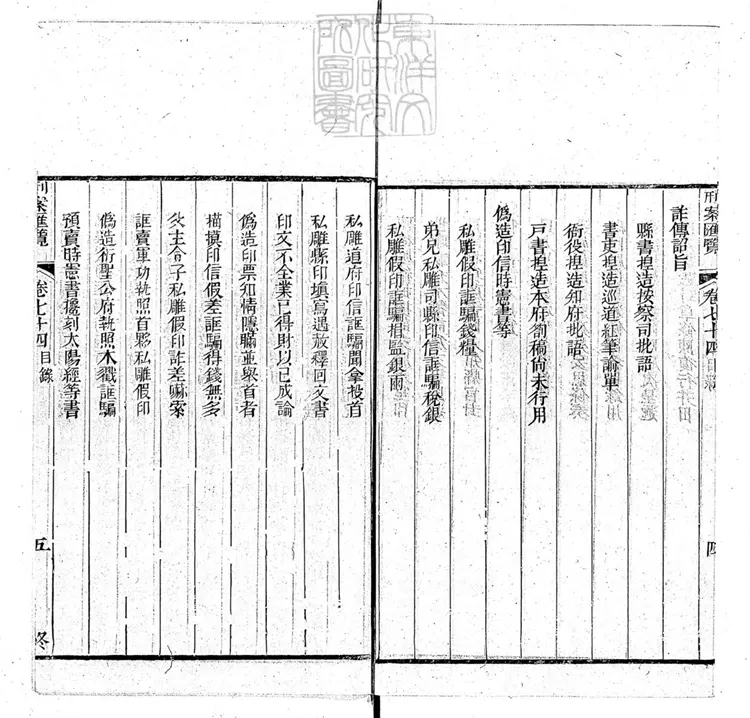 刑案匯覽 卷七十四 目錄 四
詐傳詔旨
縣書捏造按察司批語
書吏捏造巡道硃筆諭單
衙役捏造知府批語
戸書捏造本府劄稿尚未行用
偽造印信時憲書等
私雕假印誆騙錢糧
弟兄私雕司縣印信誆騙稅銀
私雕假印誆騙捐監銀兩
私雕道府印信誆騙聞拿投首
私雕縣印填寫遇赦釋回文書
印文不全業已得財以已成論
偽造印票知情隱瞞並舉首者
描摸印信假差誆騙得錢無多
主令子私雕假印詐差嚇索
誆賣軍功執照首夥私雕假印
偽造衍聖公府執照木戳誆騙
預賣時憲書攙刻太陽經等書
刑案匯覽 卷七十四 目錄 五 終
東洋文化研究所圖書